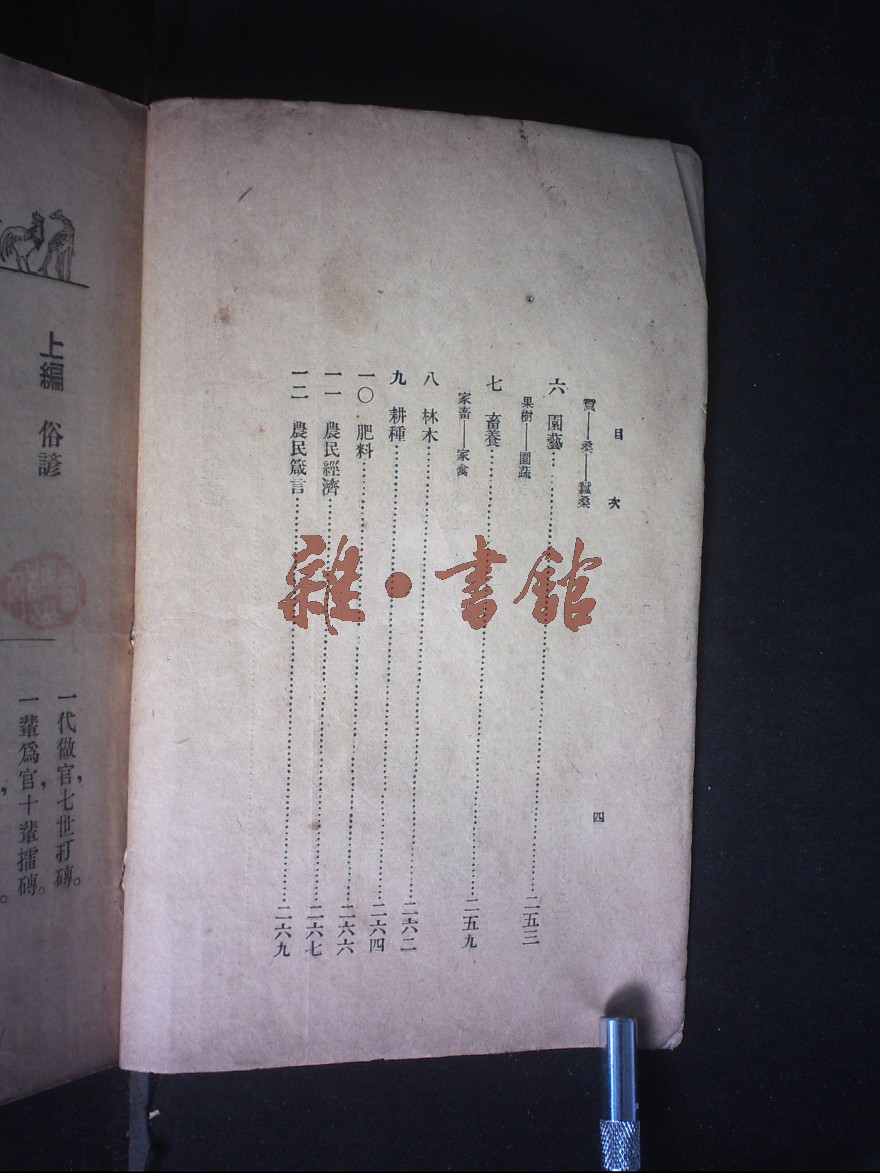 目次
四
桑——蠶桑
六 園藝……二五三
果樹——園蔬
七 畜養……二五九
家畜——家禽
八 林木……二六二
九 耕種……二六四
一〇 肥料……二六六
一一 農民經濟……二六七
一二 農民箴言……二六九
雜·書館
上編 俗諺
一代做官，七世打磚。
一輩爲官，十輩擂磚。